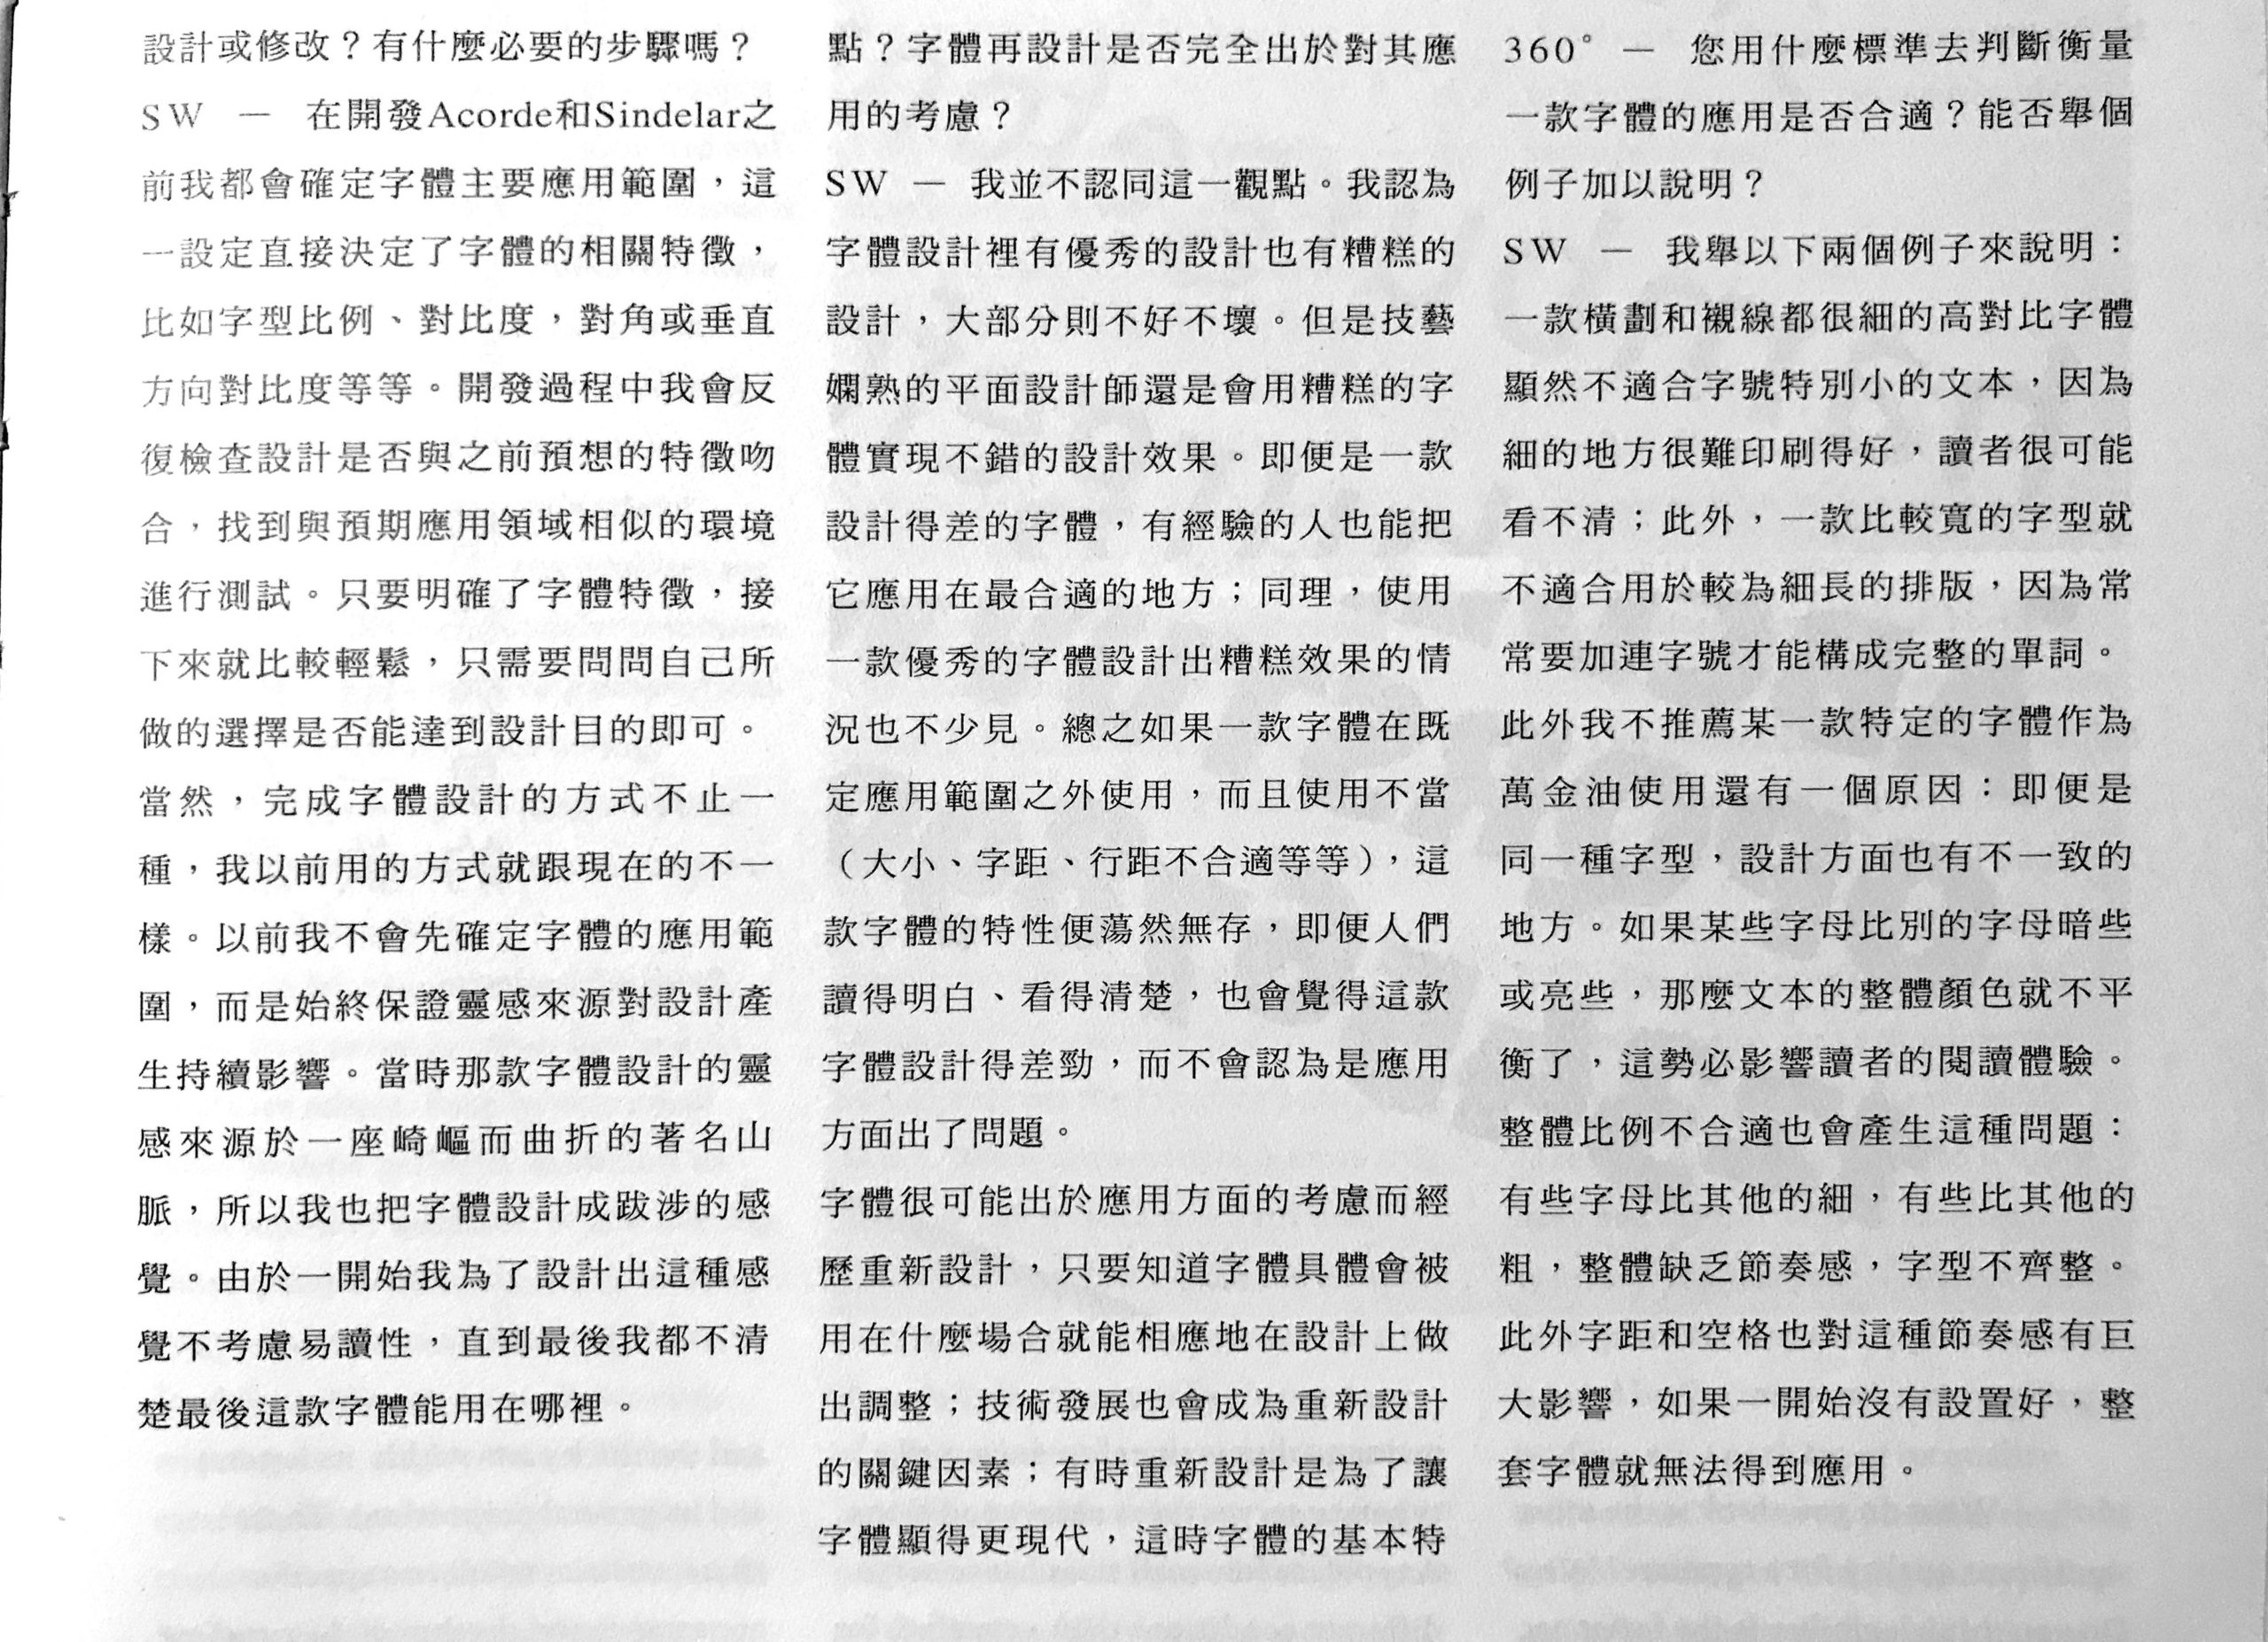 設計或修改？有什麼必要的步驟嗎？
SW — 在開發Acorde和Sindelar之
前我都會確定字體主要應用範圍，這
一設定直接決定了字體的相關特徵，
比如字型比例、對比度，對角或垂直
方向對比度等等。開發過程中我會反
復檢查設計是否與之前預想的特徵吻
合，找到與預期應用領域相似的環境
進行測試。只要明確了字體特徵，接
下來就比較輕鬆，只需要問問自己所
做的選擇是否能達到設計目的即可。
當然，完成字體設計的方式不止一
種，我以前用的方式就跟現在的不一
樣。以前我不會先確定字體的應用範
圍，而是始終保證靈感來源對設計產
生持續影響。當時那款字體設計的靈
感來源於一座崎嶇而曲折的著名山
脈，所以我也把字體設計成跋涉的感
覺。由於一開始我為了設計出這種感
覺不考慮易讀性，直到最後我都不清
楚最後這款字體能用在哪裡。
點？字體再設計是否完全出於對其應
用的考慮？
SW — 我並不認同這一觀點。我認為
字體設計裡有優秀的設計也有糟糕的
設計，大部分則不好不壞。但是技藝
嫻熟的平面設計師還是會用糟糕的字
體實現不錯的設計效果。即便是一款
設計得差的字體，有經驗的人也能把
它應用在最合適的地方；同理，使用
一款優秀的字體設計出糟糕效果的情
況也不少見。總之如果一款字體在既
定應用範圍之外使用，而且使用不當
（大小、字距、行距不合適等等），這
款字體的特性便蕩然無存，即便人們
讀得明白、看得清楚，也會覺得這款
字體設計得差勁，而不會認為是應用
方面出了問題。
字體很可能出於應用方面的考慮而經
歷重新設計，只要知道字體具體會被
用在什麼場合就能相應地在設計上做
出調整；技術發展也會成為重新設計
的關鍵因素；有時重新設計是為了讓
字體顯得更現代，這時字體的基本特
360° — 您用什麼標準去判斷衡量
一款字體的應用是否合適？能否舉個
例子加以說明？
SW — 我舉以下兩個例子來說明：
一款橫劃和襯線都很細的高對比字體
顯然不適合字號特別小的文本，因為
細的地方很難印刷得好，讀者很可能
看不清；此外，一款比較寬的字型就
不適合用於較為細長的排版，因為常
常要加連字號才能構成完整的單詞。
此外我不推薦某一款特定的字體作為
萬金油使用還有一個原因：即便是
同一種字型，設計方面也有不一致的
地方。如果某些字母比別的字母暗些
或亮些，那麼文本的整體顏色就不平
衡了，這勢必影響讀者的閱讀體驗。
整體比例不合適也會產生這種問題：
有些字母比其他的細，有些比其他的
粗，整體缺乏節奏感，字型不齊整。
此外字距和空格也對這種節奏感有巨
大影響，如果一開始沒有設置好，整
套字體就無法得到應用。